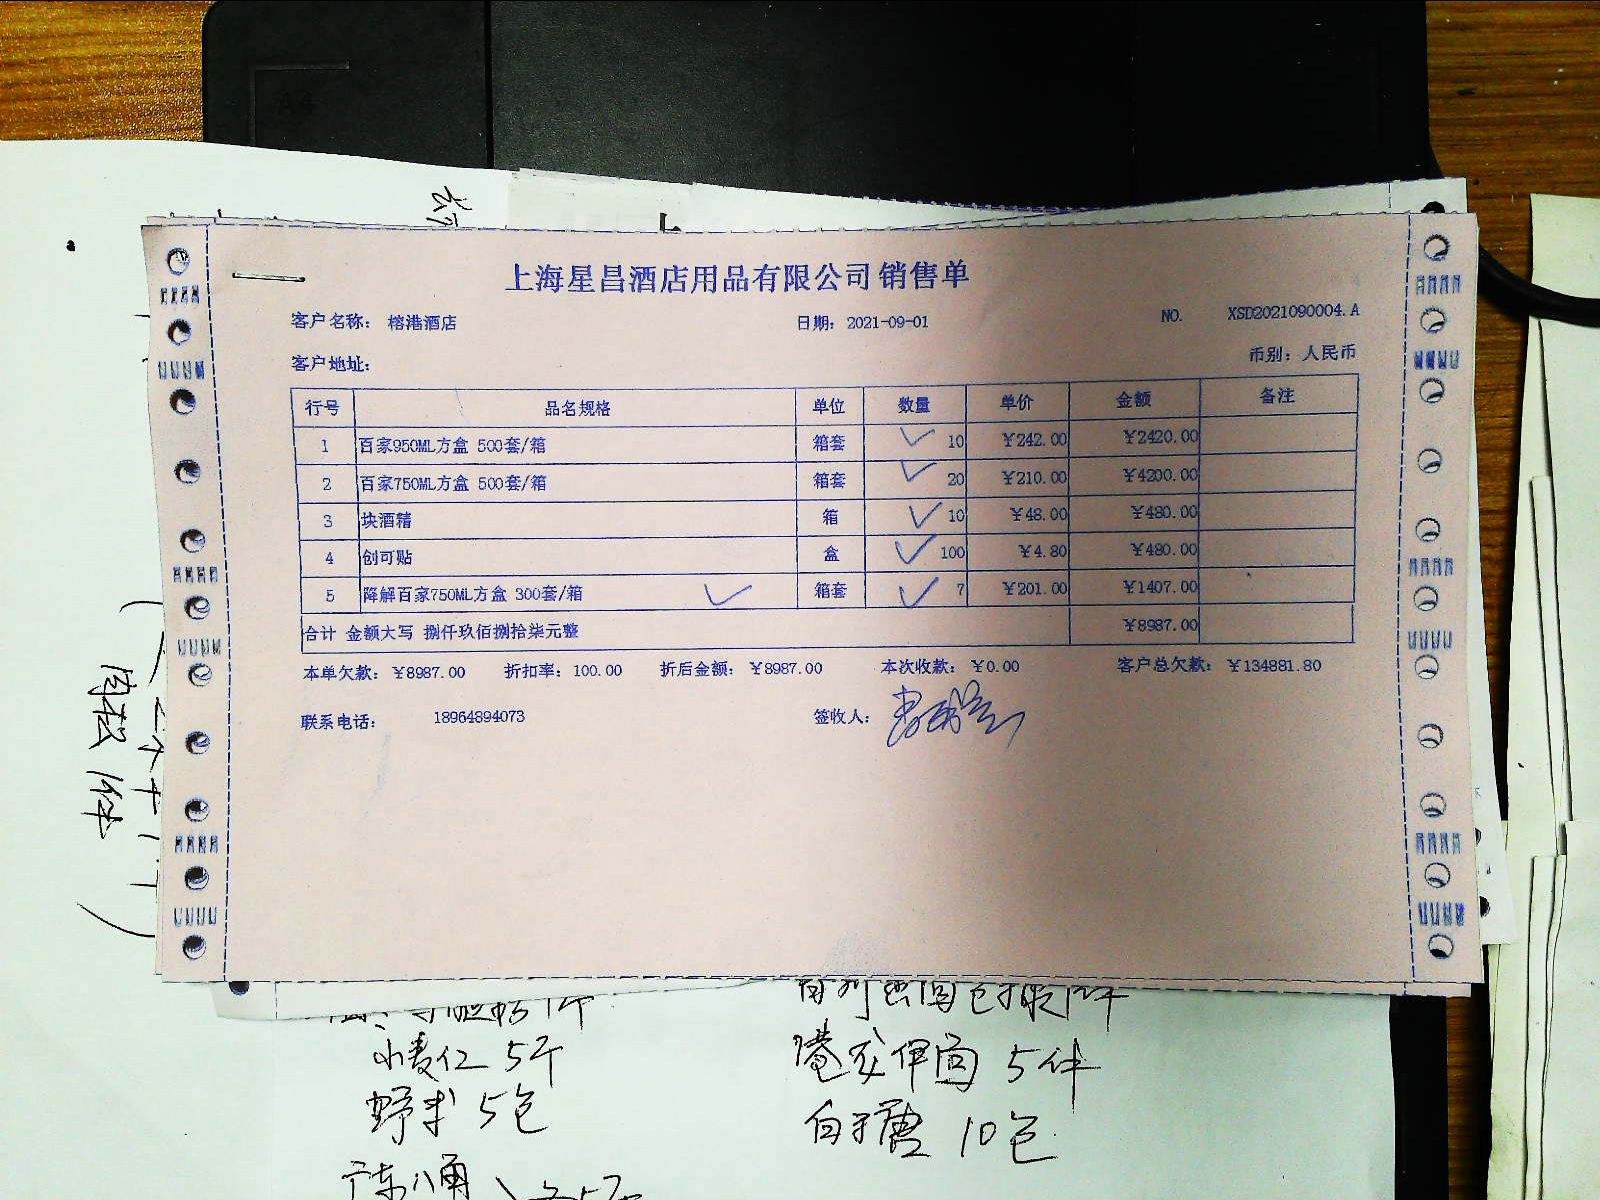 上海星昌酒店用品有限公司 销售单
客户名称： 榕港酒店 日期：2021-09-01 NO. XSD2021090004.A
客户地址： 币别：人民币
行号 品名规格 单位 数量 单价 金额 备注
1 百家950ML方盒 500套/箱 箱套 10 ￥242.00 ￥2420.00
2 百家750ML方盒 500套/箱 箱套 20 ￥210.00 ￥4200.00
3 块酒精 箱 10 ￥48.00 ￥480.00
4 创可贴 盒 100 ￥4.80 ￥480.00
5 降解百家750ML方盒 300套/箱 箱套 7 ￥201.00 ￥1407.00
合计 金额大写 捌仟玖佰捌拾柒元整 ￥8987.00
本单欠款：￥8987.00 折扣率：100.00 折后金额：￥8987.00 本次收款：￥0.00 客户总欠款：￥134881.80
联系电话： 18964894073 签收人：
小麦仁 5斤
野米 5包
广东八角
5件
白砂唐 10包
A4